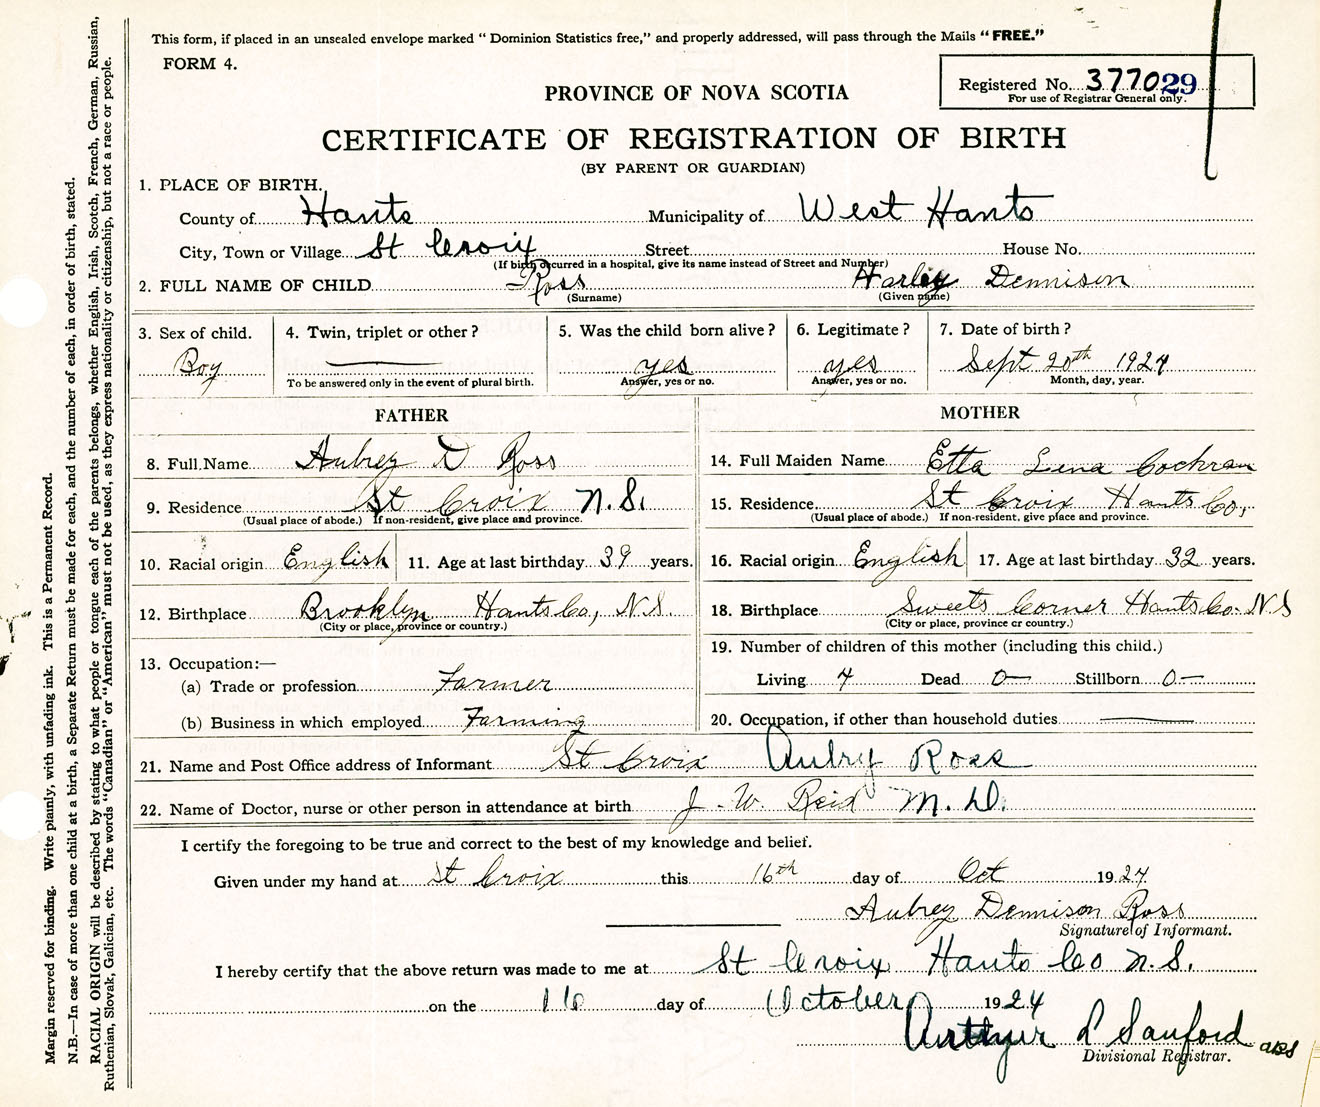 This form, if placed in an unsealed envelope marked "Dominion Statistics free," and properly addressed, will pass through the Mails "FREE."
FORM 4.
Registered No. 377029
For use of Registrar General only.
PROVINCE OF NOVA SCOTIA
CERTIFICATE OF REGISTRATION OF BIRTH
(BY PARENT OR GUARDIAN)
1. PLACE OF BIRTH.
County of Hants Municipality of West Hants
City, Town or Village St Croix Street House No.
(If birth occurred in a hospital, give its name instead of Street and Number)
2. FULL NAME OF CHILD Ross Harley Dennison
(Surname) (Given name)
3. Sex of child. 4. Twin, triplet or other? 5. Was the child born alive? 6. Legitimate? 7. Date of birth?
Boy yes yes Sept 20th 1924
To be answered only in the event of plural birth. Answer, yes or no. Answer, yes or no. Month, day, year.
FATHER
8. Full Name Aubrey D Ross
9. Residence St Croix N.S.
(Usual place of abode.) If non-resident, give place and province.
10. Racial origin English 11. Age at last birthday 39 years.
12. Birthplace Brooklyn Hants Co, N.S
(City or place, province or country.)
13. Occupation:—
(a) Trade or profession Farmer
(b) Business in which employed Farming
MOTHER
14. Full Maiden Name Etta Lena Cochran
15. Residence St Croix Hants Co,
(Usual place of abode.) If non-resident, give place and province.
16. Racial origin English 17. Age at last birthday 32 years.
18. Birthplace Sweets Corner Hants Co. N.S
(City or place, province or country.)
19. Number of children of this mother (including this child.)
Living 4 Dead 0— Stillborn 0—
20. Occupation, if other than household duties
21. Name and Post Office address of Informant St Croix Aubry Ross
22. Name of Doctor, nurse or other person in attendance at birth J. W. Reid M.D.
I certify the foregoing to be true and correct to the best of my knowledge and belief.
Given under my hand at St Croix this 16th day of Oct 1924
Aubrey Dennison Ross
Signature of Informant.
I hereby certify that the above return was made to me at St Croix Hants Co N.S.
on the 16 day of October 1924
Arthur L Sanford
Divisional Registrar.
Margin reserved for binding. Write plainly, with unfading ink. This is a Permanent Record.
N.B.—In case of more than one child at a birth, a Separate Return must be made for each, and the number of each, in order of birth, stated.
RACIAL ORIGIN will be described by stating to what people or tongue each of the parents belongs, whether English, Irish, Scotch, French, German, Russian,
Ruthenian, Slovak, Galician, etc. The words "Canadian" or "American" must not be used, as they express nationality or citizenship, but not a race or people.